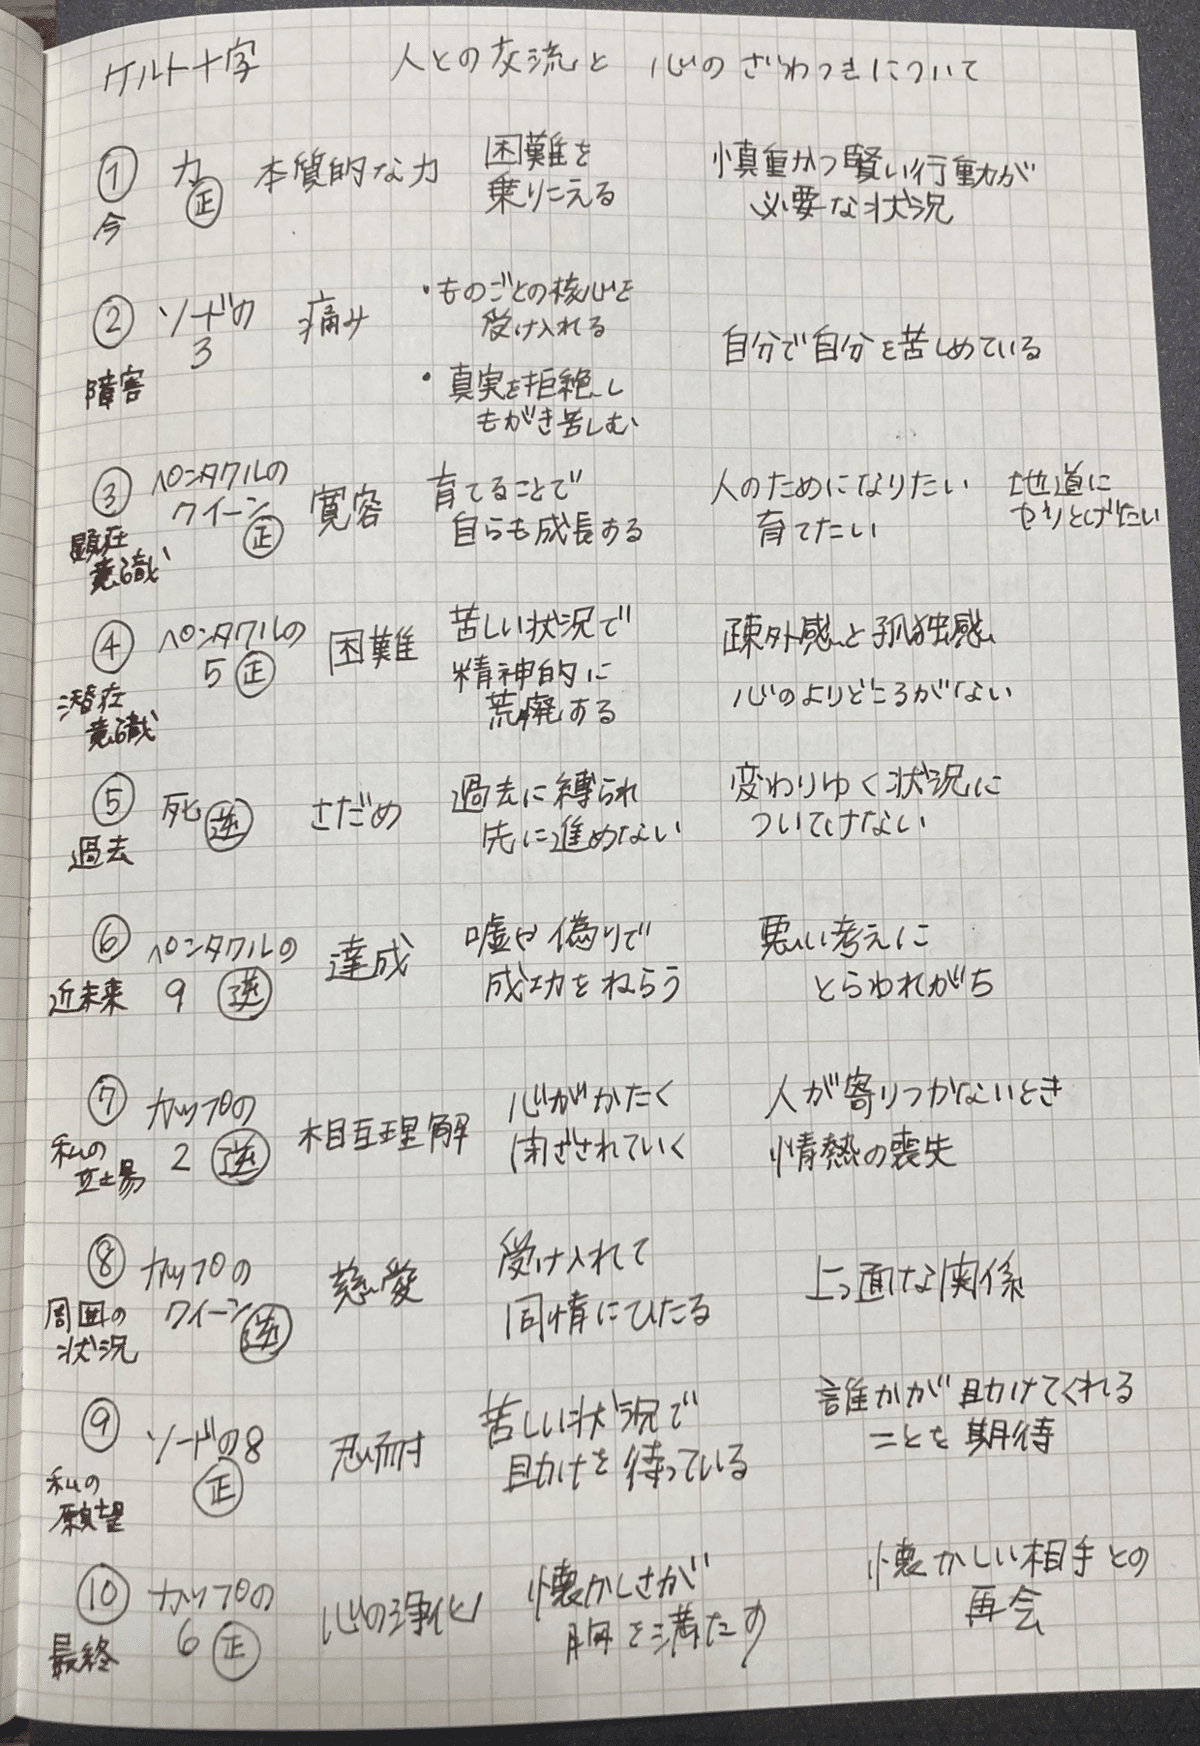 ケルト十字 人との交流と 心のざわつきについて
① 力 正 本質的な力 困難を
乗りこえる 慎重かつ賢い行動が
必要な状況
今
② ソードの
3 痛み ・ものごとの核心を
受け入れる
・真実を拒絶し
もがき苦しむ 自分で自分を苦しめている
障害
③ ペンタクルの
クイーン 正 寛容 育てることで
自らも成長する 人のためになりたい
育てたい 地道に
やりとげたい
顕在
意識
④ ペンタクルの
5 正 困難 苦しい状況で
精神的に
荒廃する 疎外感と孤独感
心のよりどころがない
潜在
意識
⑤ 死 逆 さだめ 過去に縛られ
先に進めない 変わりゆく状況に
ついてけない
過去
⑥ ペンタクルの
9 逆 達成 嘘や偽りで
成功をねらう 悪い考えに
とらわれがち
近未来
⑦ カップの
2 逆 相互理解 心がかたく
閉ざされていく 人が寄りつかないとき
情熱の喪失
私の
立場
⑧ カップの
クイーン 逆 慈愛 受け入れて
同情にひたる 上っ面な関係
周囲の
状況
⑨ ソードの8
正 忍耐 苦しい状況で
助けを待っている 誰かが助けてくれる
ことを期待
私の
願望
⑩ カップの
6 正 心の浄化 懐かしさが
胸を満たす 懐かしい相手との
再会
最終